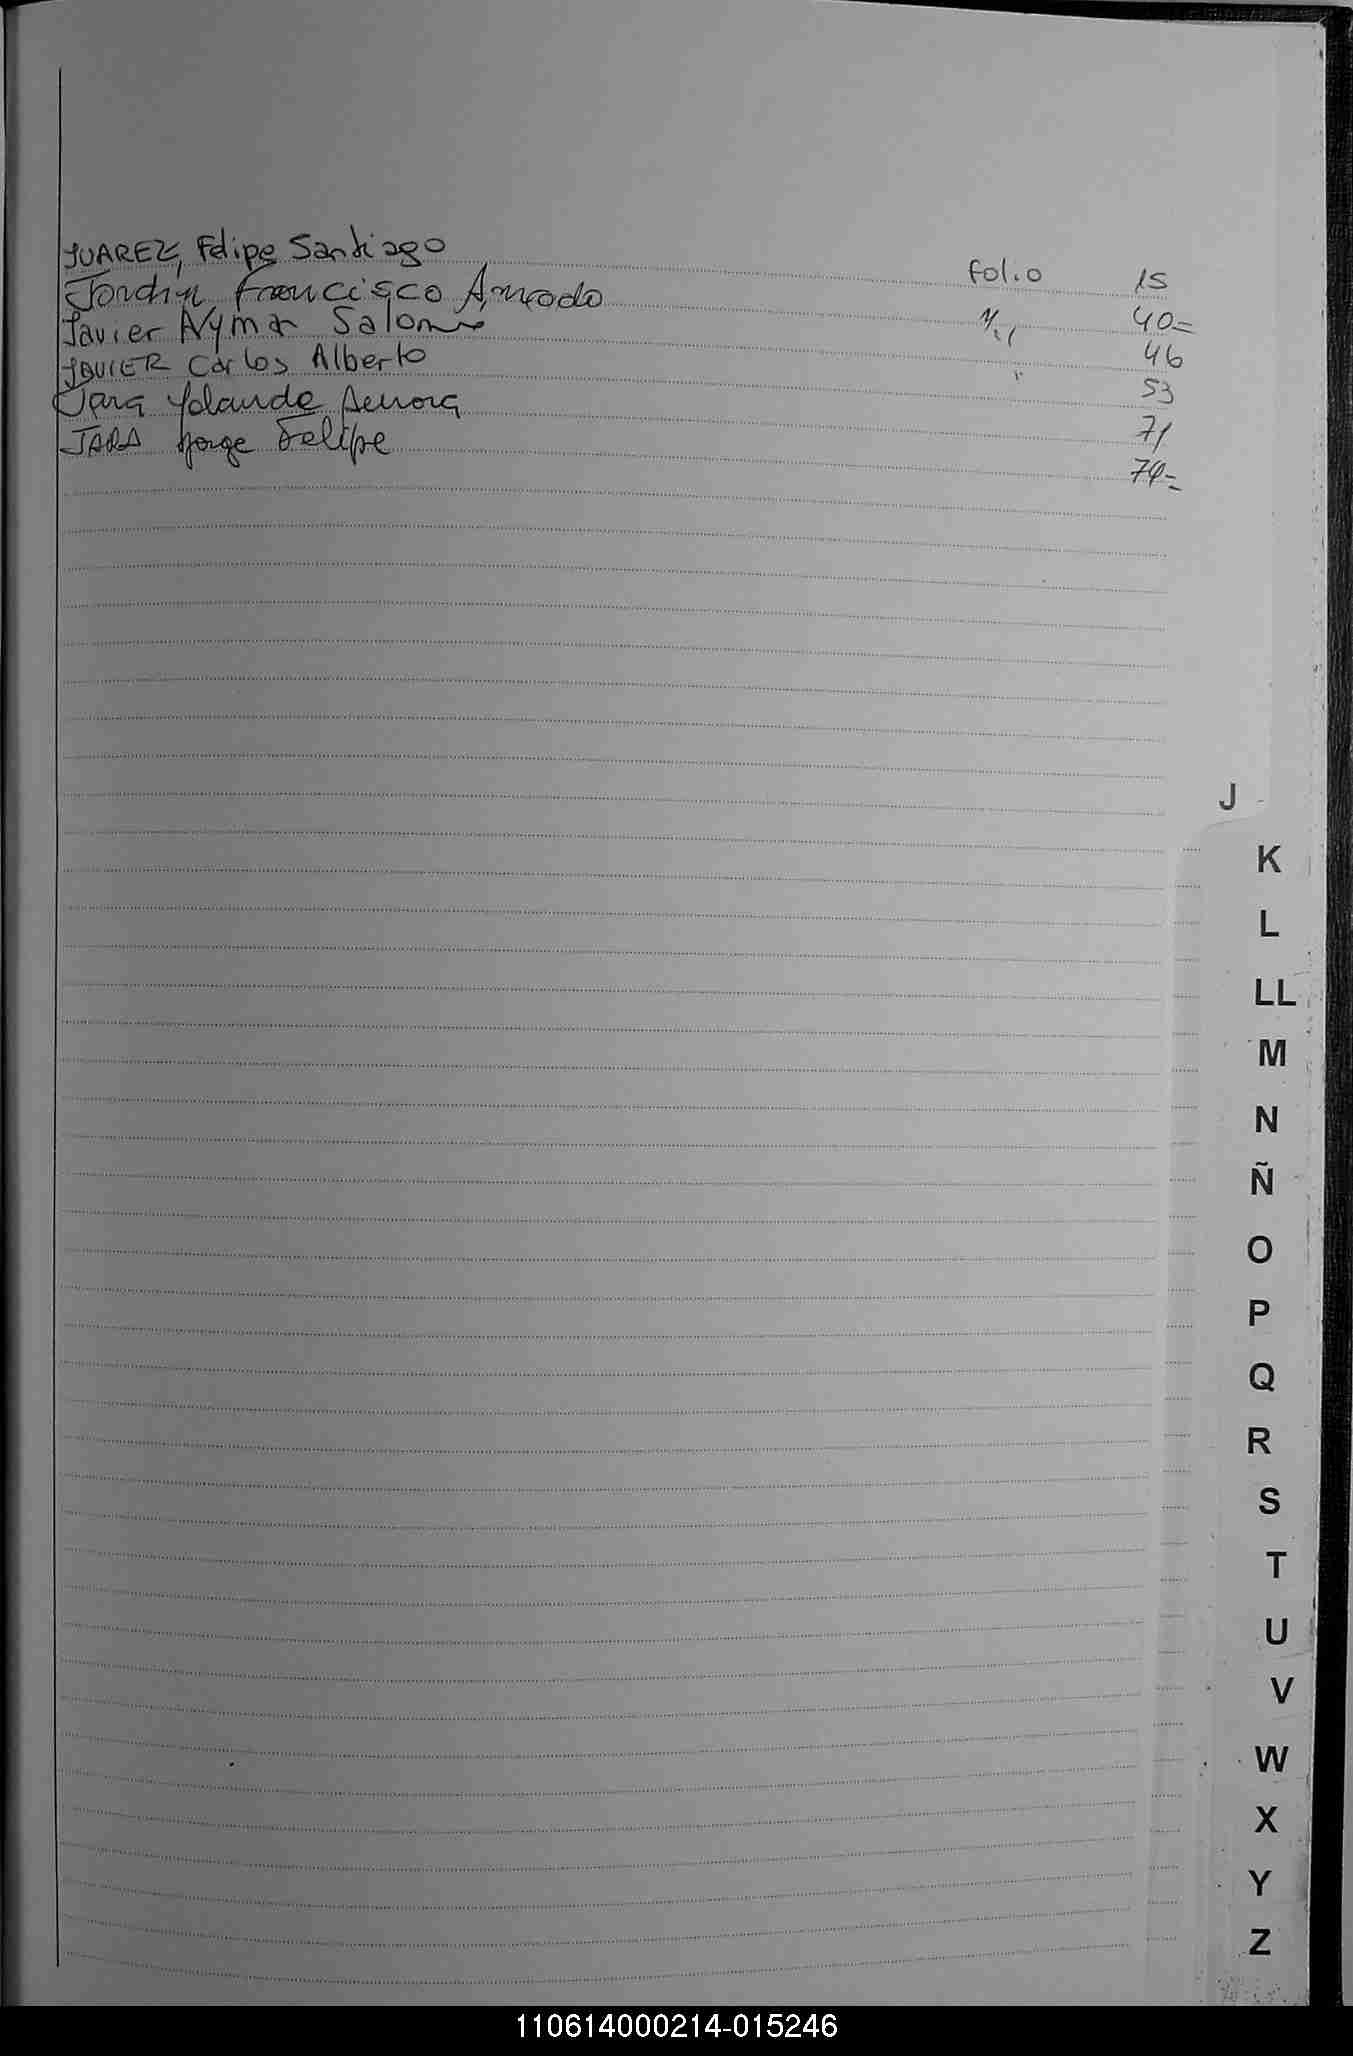 JUAREZ, Felipe Santiago folio 15
Jordán Francisco Amado 40=
Javier Aymar 46
JAVIER Carlos Alberto " 53
Jara Yolanda Aurora 71
JARA Jorge Felipe 74=
J
K
L
LL
M
N
Ñ
O
P
Q
R
S
T
U
V
W
X
Y
Z
110614000214-015246